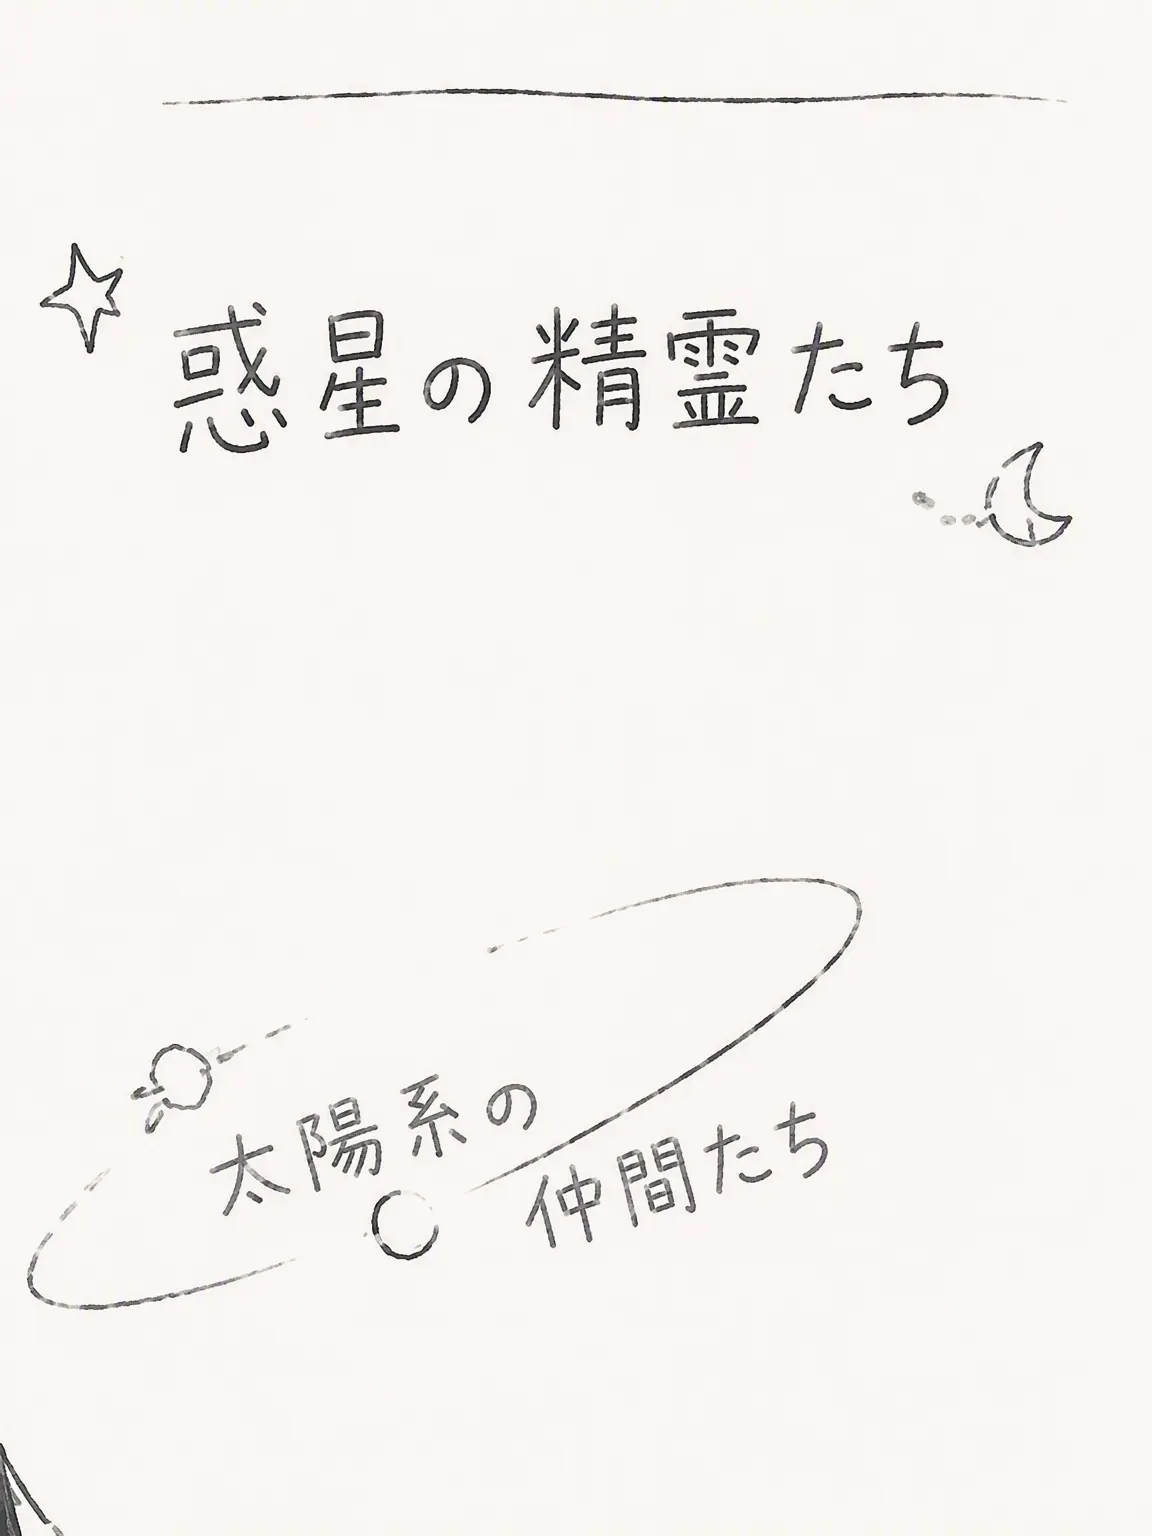 惑星の精霊たち
太陽系の
仲間たち